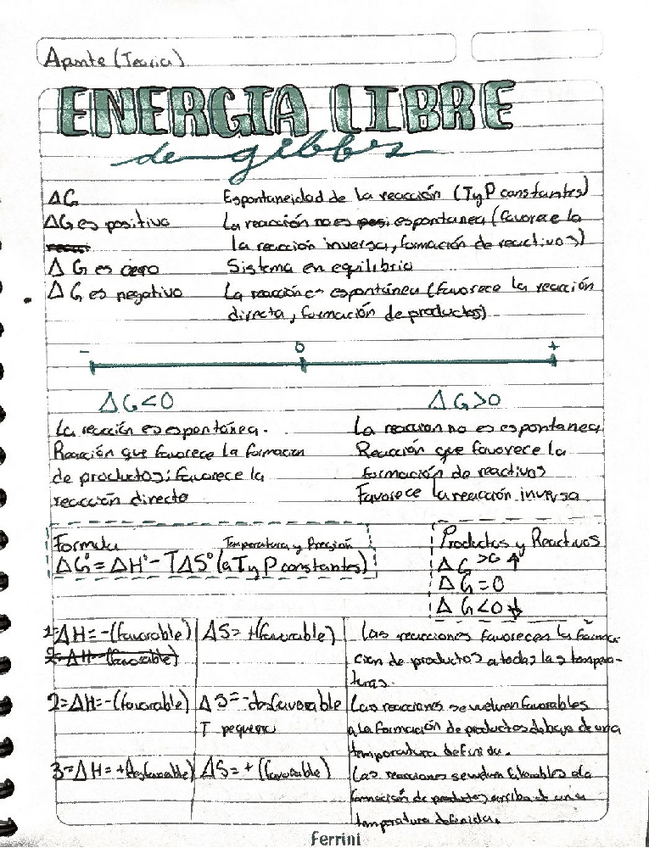 Apunte (Teoria)
ENERGIA LIBRE
de gibbs
ΔG Espontaneidad de la reacción (T y P constantes)
ΔG es positivo La reacción no es espontanea (favorece la
la reacción inversa, formación de reactivos)
ΔG es cero Sistema en equilibrio
ΔG es negativo La reacción es espontánea (favorece la reacción
directa, formación de productos)
- 0 +
ΔG<0 ΔG>0
La reacción es espontánea. La reaccion no es espontanea
Reacción que favorece la formacion Reacción que favorece la
de productos; favorece la formación de reactivos
reacción directa Favorece la reacción inversa
Formula Temperatura y Presión
ΔG°=ΔH°-TΔS° (a T y P constantes)
Productos y Reactivos
ΔG >0 ↑
ΔG=0
ΔG<0 ↓
1=ΔH=-(favorable) ΔS=+(favorable) Las reacciones favorecen la forma-
2=ΔH=(favorable) cion de productos a todas las tempera-
turas.
2=ΔH=-(favorable) ΔS=-desfavorable Las reacciones se vuelven favorables
T pequeña a la formación de productos debajo de una
temperatura definida.
3=ΔH=+(desfavorable) ΔS=+(favorable) Las reacciones se vuelven favorables a la
formación de productos arriba de una
temperatura definida.
Ferrini